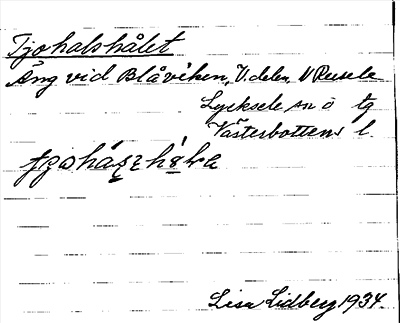 Tjohalshålet
Äng vid Blåviken, V. delen, V Rusele
Lycksele sn o tg
Västerbottens l.
Lisa Lidberg 1934.